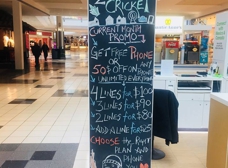 CRICKET
CURRENT MONTH
PROMO
GET FREE PHONE
OR
$50 OFF
UNLIMITED EVERYTHING
4 LINES FOR $100
3 LINES FOR $90
2 LINES FOR $80
ADD A LINE FOR $25
CHOOSE THE RIGHT
PLAN AND
PHONE